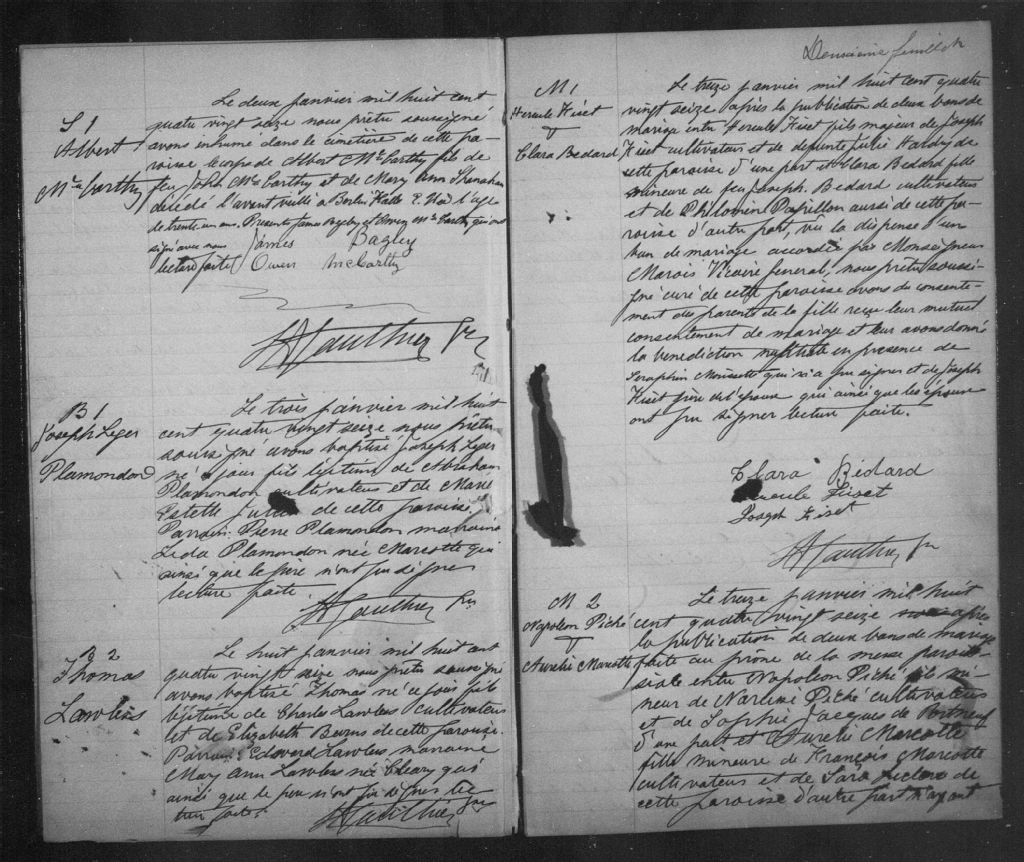 S 1
Albert
McCarthy
Le deux janvier mil huit cent
quatre vingt seize nous prêtre soussigné
avons inhumé dans le cimetière de cette pa-
roisse le corps de Albert McCarthy fils de
feu John McCarthy et de Mary Ann Shanahan
décédé l'avant veille à Berlin Falls E. Unis l'age
de trente un ans. Présents James Bagley et Owen McCarthy qui ont
signé avec nous
lecture faite
James Bagley
Owen McCarthy
Gauthier Ptr
B 1
Joseph Leger
Plamondon
Le trois janvier mil huit
cent quatre vingt seize nous prêtre
soussigné avons baptisé Joseph Leger
né jour fils légitime de Abraham
Plamondon cultivateur et de Marie
Estelle de cette paroisse
Parrain Pierre Plamondon marraine
Leda Plamondon née Marcotte qui
ainsi que le père n'ont pu signer
lecture faite.
Gauthier Ptr
B 2
Thomas
Lawless
Le huit janvier mil huit cent
quatre vingt seize nous prêtre soussigné
avons baptisé Thomas né ce jour fils
légitime de Charles Lawless cultivateur
et de Elizabeth Burns de cette paroisse.
Parrain Edouard Lawless marraine
Mary Ann Lawless née Cleary qui
ainsi que le père n'ont pu signer lec
ture faite.
Gauthier Ptr
Deuxième feuillet
M 1
Hercule Fiset
&
Clara Bedard
Le treize janvier mil huit cent quatre
vingt seize après la publication de deux bans de
mariage entre Hercule Fiset fils majeur de Joseph
Fiset cultivateur et de defunte Julie Hardy de
cette paroisse d'une part et Clara Bedard fille
mineure de feu Joseph Bedard cultivateur
et de Philovine Papillon aussi de cette pa-
roisse d'autre part, vu la dispense d'un
ban de mariage accordée par Monseigneur
Marois Vicaire général, nous prêtre soussi-
gné curé de cette paroisse avons du consente-
ment des parents de la fille reçu leur mutuel
consentement de mariage et leur avons donné
la benediction nuptiale en presence de
Seraphin Moissette qui n'a pu signer et de Joseph
Fiset père de l'époux qui ainsi que les époux
ont pu signer lecture faite.
Clara Bédard
Hercule Fiset
Joseph Fiset
Gauthier Ptr
M 2
Napoleon Piché
&
Aurelie Marcotte
Le treize janvier mil huit
cent quatre vingt seize après
la publication de deux bans de mariage
faite au prône de la messe parois-
siale entre Napoleon Piché fils mi-
neur de Narcisse Piché cultivateur
et de Sophie Jacques de Portneuf
d'une part et Aurelie Marcotte
fille mineure de François Marcotte
cultivateur et de Sara Leclerc de
cette paroisse d'autre part n'ayant